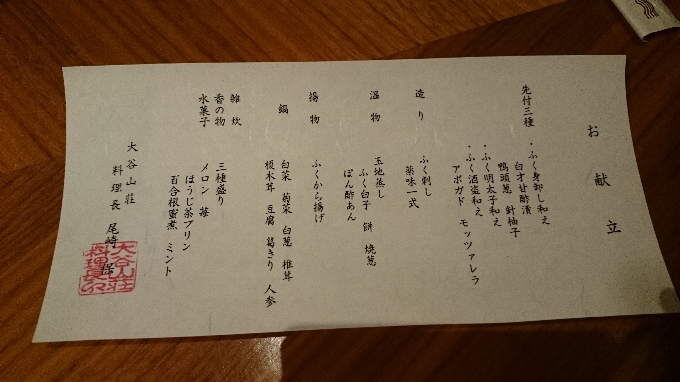 お献立
先付三種
・ふく身卸し和え
白才甘酢漬
鴨頭葱 針柚子
・ふく明太子和え
・ふく酒盗和え
アボガド モッツァレラ
造り
ふく刺し
薬味一式
温物
玉地蒸し
ふく白子 餅 焼葱
ぽん酢あん
揚物
ふくから揚げ
鍋
白菜 菊菜 白葱 椎茸
榎木茸 豆腐 葛きり 人参
雑炊
香の物
三種盛り
水菓子
メロン 苺
ほうじ茶プリン
百合根蜜煮 ミント
大谷山荘
料理長 尾崎 保
大谷山荘
料理長印